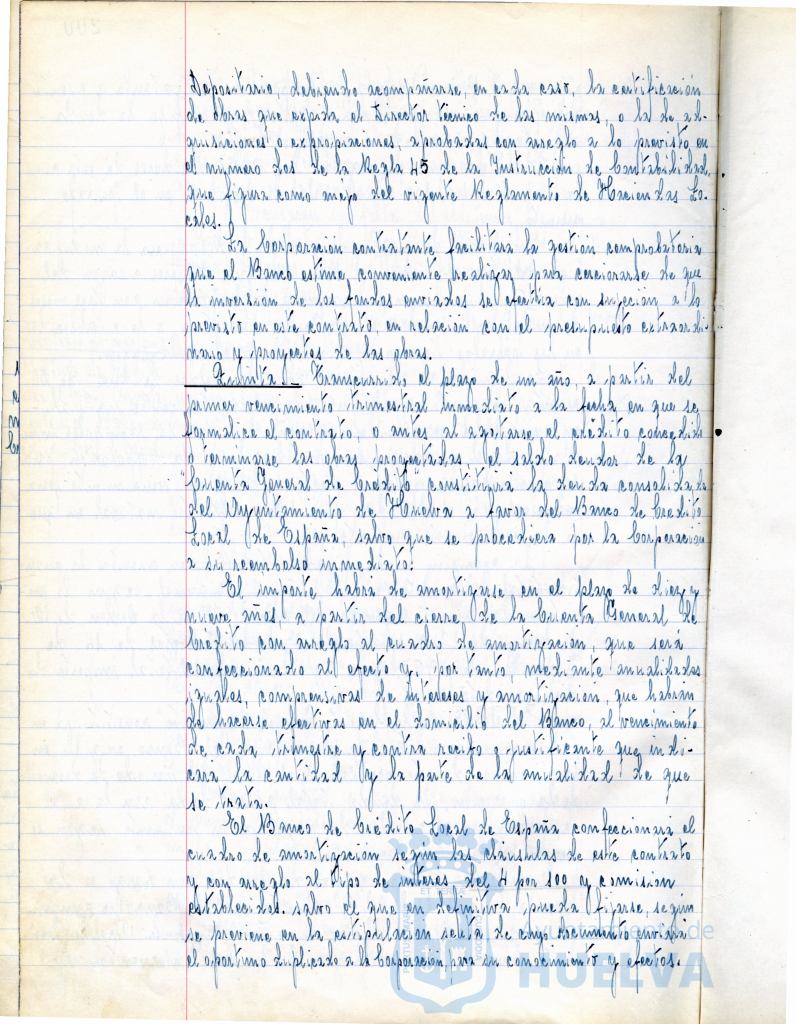 Depositario, debiendo acompañarse, en cada caso, la certificación
de obras que expida el Director Técnico de las mismas, o la de ad-
quisiciones o expropiaciones, aprobadas con arreglo a lo previsto en
el número dos de la Regla 45 de la Instrucción de Contabilidad,
que figura como anejo del vigente Reglamento de Haciendas Lo-
cales.
La Corporación contratante facilitará la gestión comprobatoria
que el Banco estime conveniente realizar para cerciorarse de que
la inversión de los fondos enviados se efectúa con sujeción a lo
previsto en este contrato, en relación con el presupuesto extraordi-
nario y proyectos de las obras.
Quinta. - Transcurrido el plazo de un año, a partir del
primer vencimiento trimestral inmediato a la fecha en que se
formalice el contrato, o antes, al agotarse el crédito concedido
o terminarse las obras proyectadas, el saldo deudor de la
"Cuenta General de Crédito" constituirá la deuda consolidada
del Ayuntamiento de Huelva a favor del Banco de Crédito
Local de España, salvo que se procediera por la Corporación
a su reembolso inmediato.
El importe habrá de amortizarse en el plazo de diez y
nueve años, a partir del cierre de la Cuenta General de
Crédito con arreglo al cuadro de amortización, que será
confeccionado al efecto y, por tanto, mediante anualidades
iguales, comprensivas de intereses y amortización, que habrán
de hacerse efectivas en el domicilio del Banco, al vencimiento
de cada trimestre y contra recibo o justificante que indi-
cará la cantidad y la parte de la anualidad de que
se trata.
El Banco de Crédito Local de España confeccionará el
cuadro de amortización según las cláusulas de este contrato
y con arreglo al tipo de interés del 4 por 100 y comisión
establecidos, salvo el que en definitiva pueda fijarse, según
se previene en la estipulación sexta, de cuyo documento enviará
el oportuno duplicado a la Corporación, para su conocimiento y efectos.
Ayuntamiento de
HUELVA